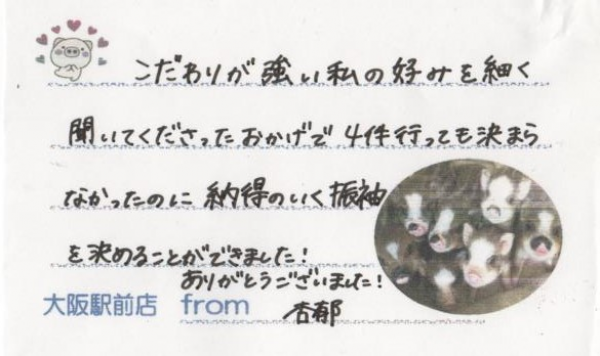 こだわりが強い私の好みを細く
聞いてくださったおかげで4件行っても決まら
なかったのに納得のいく振袖
を決めることができました!
ありがとうございました!
大阪駅前店 from 杏郁